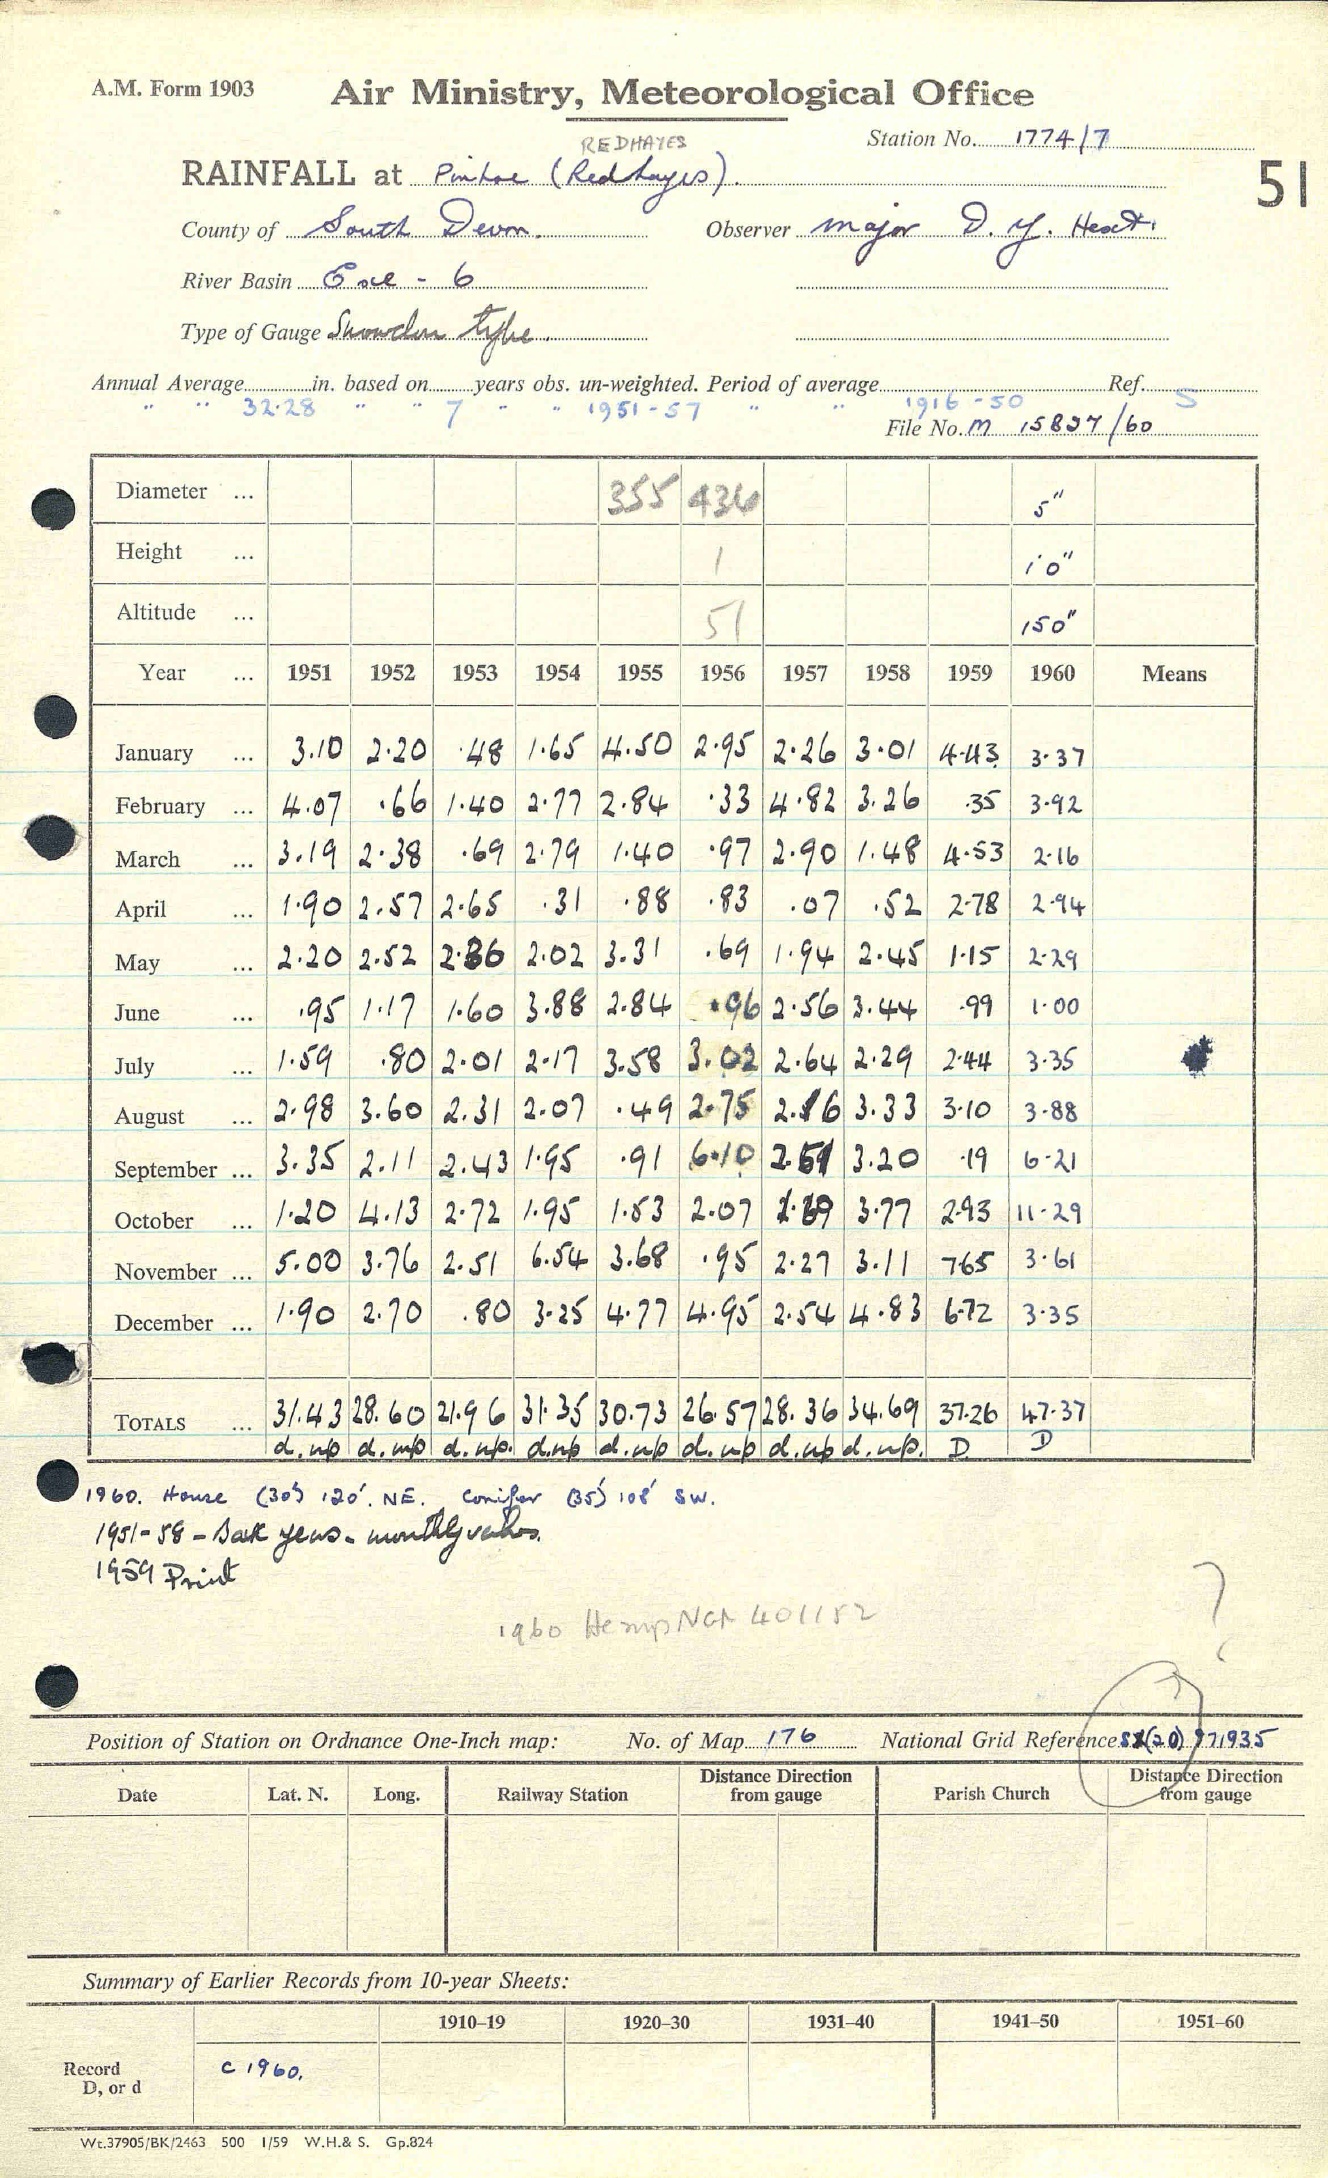 A.M. Form 1903 Air Ministry, Meteorological Office
REDHAYES Station No. 1774/7
RAINFALL at Pinhoe (Redhayes). 51
County of South Devon. Observer Major D. Y.
River Basin Exe - 6
Type of Gauge Snowdon type.
Annual Average in. based on years obs. un-weighted. Period of average Ref.
" " 32.28 " " 7 " " 1951-57 " " 1916-50 S
File No. M 15827/60
Diameter ... 355 436 5"
Height ... 1 1'0"
Altitude ... 51 150"
Year ... 1951 1952 1953 1954 1955 1956 1957 1958 1959 1960 Means
January ... 3.10 2.20 .48 1.65 4.50 2.95 2.26 3.01 4.43 3.37
February ... 4.07 .66 1.40 2.77 2.84 .33 4.82 3.26 .35 3.92
March ... 3.19 2.38 .69 2.79 1.40 .97 2.90 1.48 4.53 2.16
April ... 1.90 2.57 2.65 .31 .88 .83 .07 .52 2.78 2.94
May ... 2.20 2.52 2.36 2.02 3.31 .69 1.94 2.45 1.15 2.29
June ... .95 1.17 1.60 3.88 2.84 .96 2.56 3.44 .99 1.00
July ... 1.59 .80 2.01 2.17 3.58 3.02 2.64 2.29 2.44 3.35
August ... 2.98 3.60 2.31 2.07 .49 2.75 2.16 3.33 3.10 3.88
September ... 3.35 2.11 2.43 1.95 .91 6.10 2.51 3.20 .19 6.21
October ... 1.20 4.13 2.72 1.95 1.53 2.07 1.69 3.77 2.93 11.29
November ... 5.00 3.76 2.51 6.54 3.68 .95 2.27 3.11 7.65 3.61
December ... 1.90 2.70 .80 3.25 4.77 4.95 2.54 4.83 6.72 3.35
TOTALS ... 31.43 28.60 21.96 31.35 30.73 26.57 28.36 34.69 37.26 47.37
d.np d.np d.np. d.np d.np d.np d.np d.np. D. D
1960. House (30') 120'. NE. Conifer (35') 108' SW.
1951-58 - Back years - monthly values.
1959 Print
1960 Hemp NGR 401152 ?
Position of Station on Ordnance One-Inch map: No. of Map 176 National Grid Reference (20) 971935
Date Lat. N. Long. Railway Station Distance Direction from gauge Parish Church Distance Direction from gauge
Summary of Earlier Records from 10-year Sheets:
1910–19 1920–30 1931–40 1941–50 1951–60
Record D, or d C 1960.
Wt.37905/BK/2463 500 1/59 W.H.& S. Gp.824